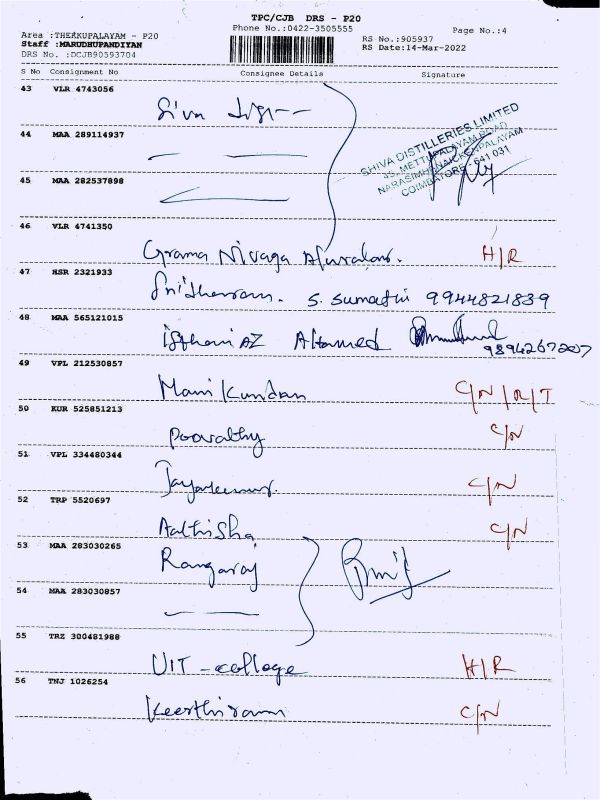 TPC/CJB DRS - P20
Phone No.:0422-3505555
Page No.:4
Area :THEKKUPALAYAM - P20
Staff :MARUDHUPANDIYAN
DRS No. :DCJB90593704
RS No.:905937
RS Date:14-Mar-2022
S No Consignment No Consignee Details Signature
43 VLR 4743056
Siva
SHIVA DISTILLERIES LIMITED
METTUPALAYAM ROAD
NARASIMHANAICKENPALAYAM
COIMBATORE - 641 031
44 MAA 289114937
45 MAA 282537898
46 VLR 4741350
Grama Nivaga H/R
47 HSR 2321933
S. Sumathi 9944821839
48 MAA 565121015
Ahamed
9894267207
49 VPL 212530857
Manikundan C/N/R/T
50 KUR 525851213
Poovathy C/N
51 VPL 334480344
C/N
52 TRP 5520697
Aathisha C/N
53 MAA 283030265
Rangaraj
54 MAA 283030857
55 TRZ 300481988
UIT - college H/R
56 TNJ 1026254
Keerthiram C/N